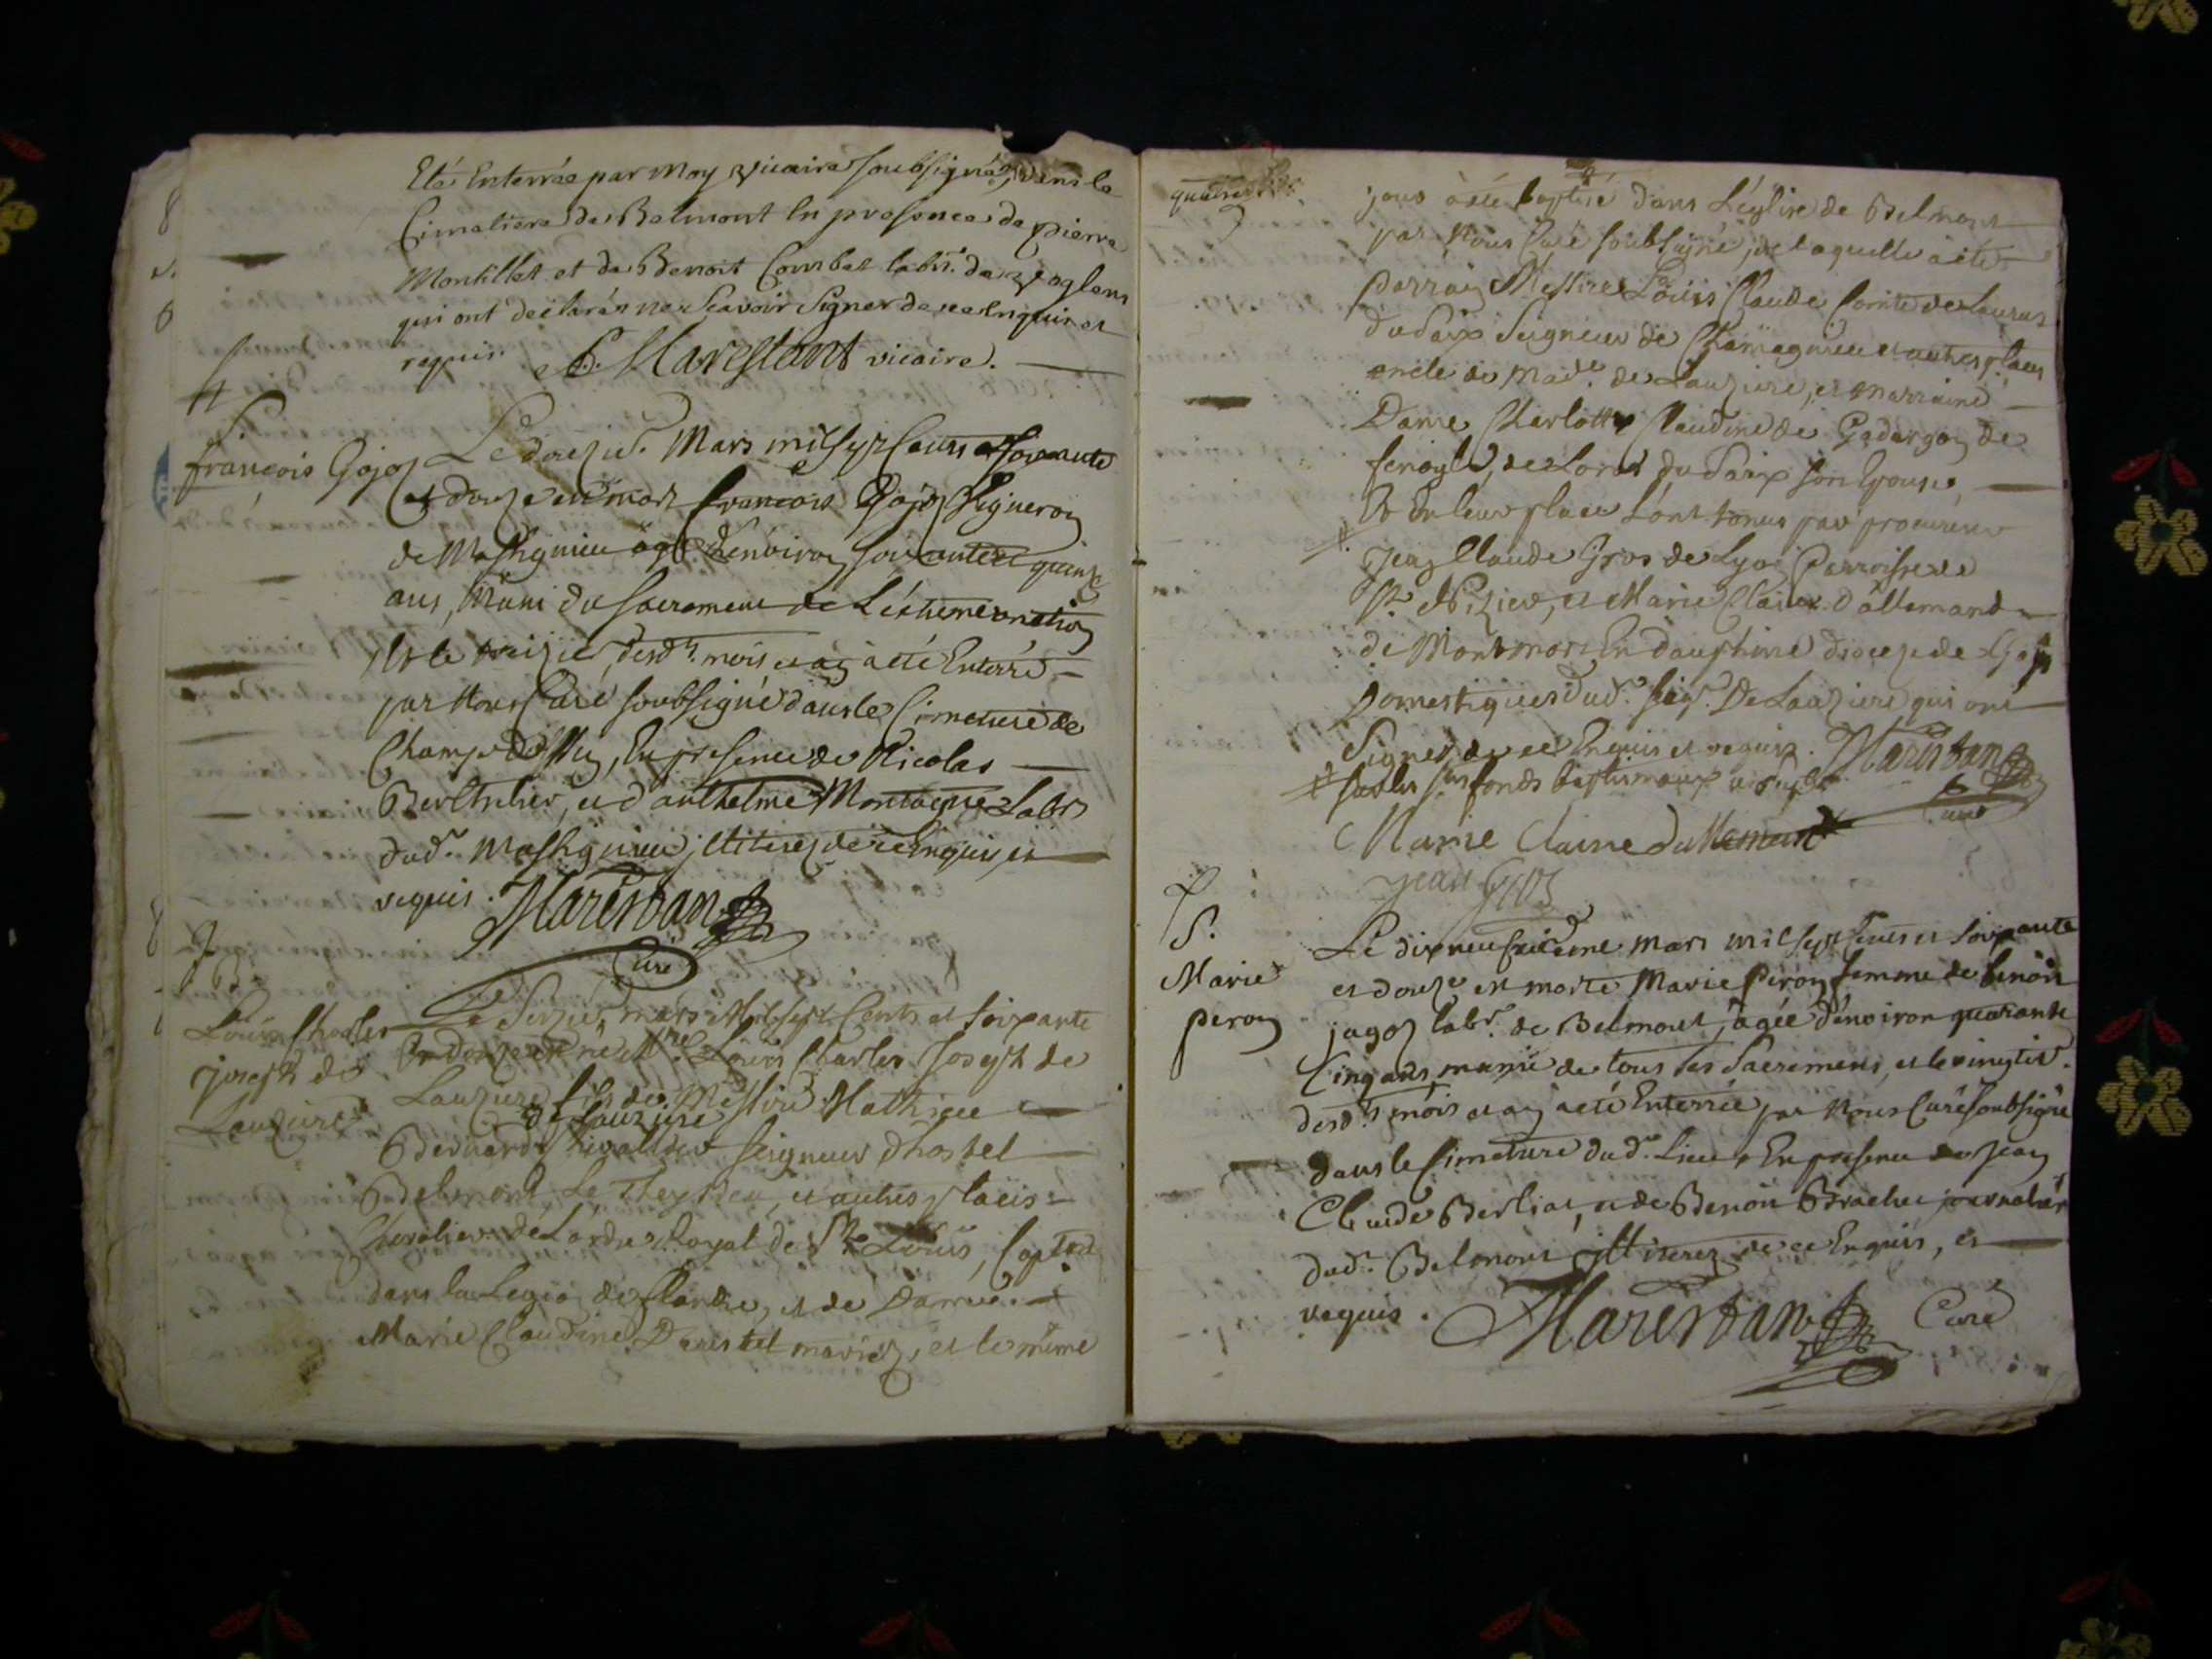 Eté Enterrée par Moy vicaire soubsigné, dans le
Cimetiere de Belmont En presence de pierre
Montillet et de Benoit Combet labrs. de
qui ont declarés ne scavoir signer de ce Enquis et
requis. Marestant vicaire.
françois Gojoz
Le douziè. Mars mil sept Cents et soixante
et douze est mort francois Gojoz Vigneron
de Massignieu agé d'environ soixante et quinze
ans, Muni du sacrement de L'éxtreme onction
et le treiziè desdts. mois et an a eté Enterré
par Nous Curé soubsigné dans le Cimetiere de
Champ En presence de Nicolas
Berthelier, et d'anthelme Montagne Labrs
dud. Massignieu illiterez de ce Enquis, et
requis. Marestan
Curé
B
Louis Charles
joseph de
Lauziere
Le Seiziè, mars Mil sept Cents et soixante
et douze est né Mre. Louis Charles Joseph de
Lauziere fils de Messire Mathieu
de Lauziere
Bernard Chevallier Seigneur d'hostel
Belmont, Le et autres places
Chevalier de L'ordre Royal de St. Louis, Capitne
dans la Legion de flandre, et de Dame
Marie Claudine Daustel mariez, et le même
jour a été baptisé dans L'église de Belmont
par Nous Curé soubsigné, de laquelle a eté
Parrain Messire Louis Claude Comte de Lauras
Seigneur de Chamagnieu et autres places
oncle de Made. de Lauziere, et marraine
Dame Charlotte Claudine de Gadargon de
son Epouse,
Et En leur place L'ont tenus par procureur
Jean Claude Gros de Lyon Parroisse de
St. Nizier, et Marie Claire d'allemand
de Montmort En dauphiné dioceze de
Domestiques dud. seigr. De Lauziere qui ont
Signer de ce Enquis et requis. Marestan
sur les fonds baptismaux curé
Marie Claire dallemand
Jean Gros
S.
Marie
peron
Le dix neufvieme mars mil sept Cents et soixante
et douze est morte Marie peron femme de benoit
jagoz labr. de Belmont, agée d'environ quarante
Cinq ans, munie de tous les Sacremens, et le vingtiè.
desdts. mois et an a eté Enterrée par Nous Curé soubsigné
dans le Cimetiere dud. Lieu En presence de Jean
Claude Berliat, et de Benoit Brachet journalier
dud. Belmont illiterez de ce Enquis, et
requis. Marestan Curé